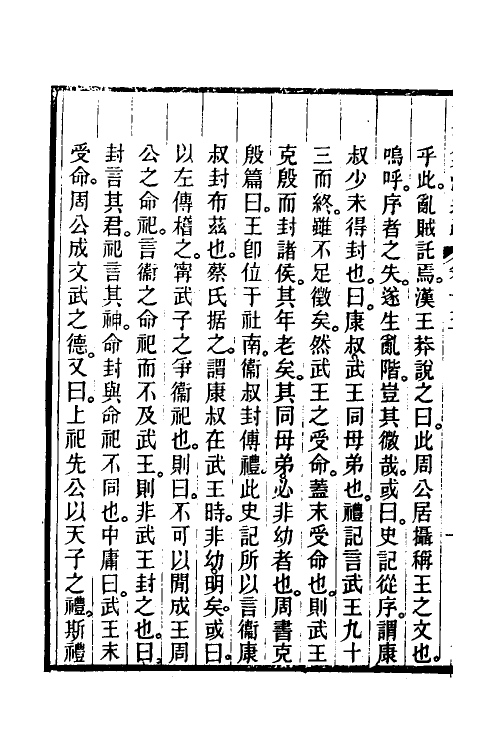 乎此。亂賊託焉。漢王莽說之曰。此周公居攝稱王之文也。
嗚呼。序者之失。遂生亂階。豈其微哉。或曰。史記從序。謂康
叔少未得封也。曰。康叔。武王同母弟也。禮記言武王九十
三而終。雖不足徵矣。然武王之受命。蓋末受命也。則武王
克殷而封諸侯。其年老矣。其同母弟。必非幼者也。周書克
殷篇曰。王卽位于社南。衞叔封傅禮。此史記所以言衞康
叔封布茲也。蔡氏据之。謂康叔在武王時。非幼。明矣。或曰。
以左傳稽之。甯武子之爭衞祀也。則曰。不可以閒成王周
公之命祀。言衞之命祀而不及武王。則非武王封之也。曰。
封言其君。祀言其神。命封與命祀不同也。中庸曰。武王末
受命。周公成文武之德。又曰。上祀先公以天子之禮。斯禮